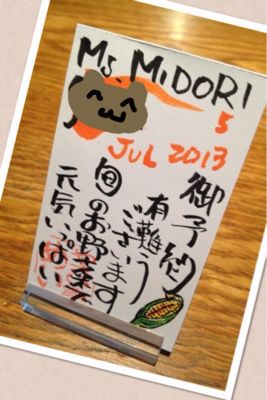 Ms. MIDORI
5
JUL 2013
御予約
有難う
ございます
旬のお野菜で
元気いっぱい